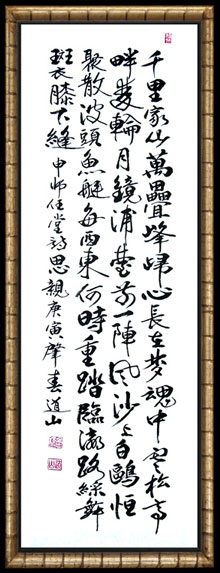 千里家山萬疊峰歸心長在夢魂中寒松亭
畔雙輪月鏡浦臺前一陣風沙上白鷗恒
聚散波頭魚艇每西東何時重踏臨瀛路綵舞
斑衣膝下縫 申師任堂詩思親庚寅肇春道山